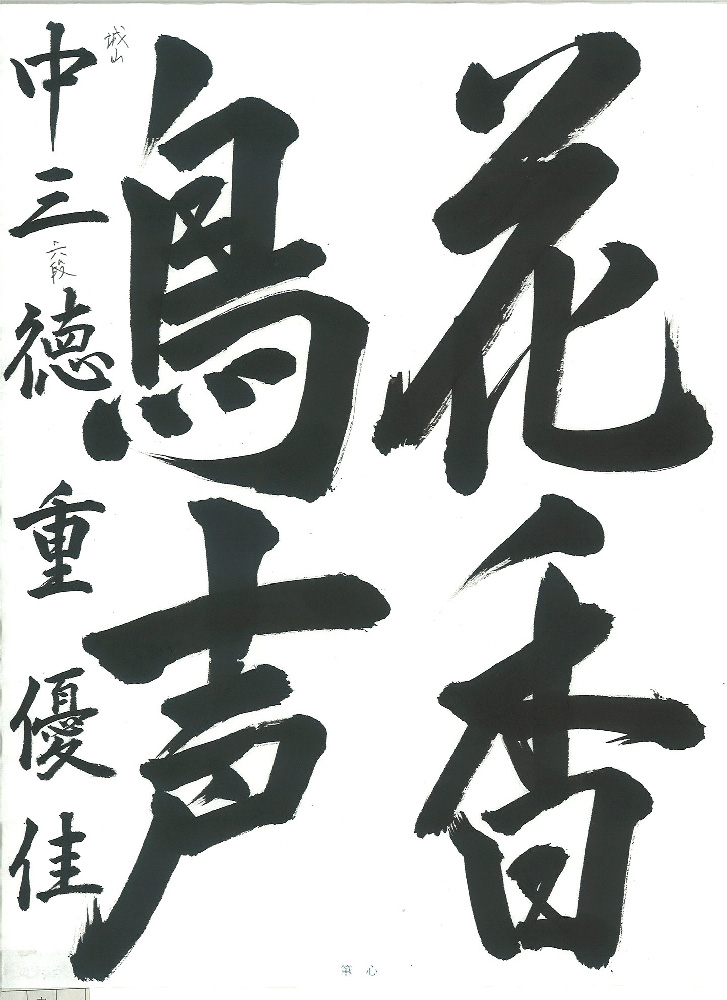 花香
鳥声
城山
中三 六段 徳重優佳
筆心